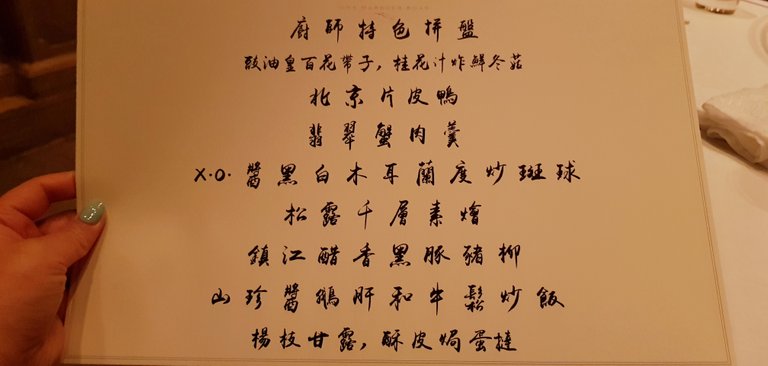 廚師特色拼盤
豉油皇百花帶子，桂花汁炸鮮冬菇
北京片皮鴨
翡翠蟹肉羹
X.O.醬黑白木耳蘭度炒斑球
松露千層素燴
鎮江醋香黑豚豬柳
山珍醬鵝肝和牛鬆炒飯
楊枝甘露，酥皮焗蛋撻